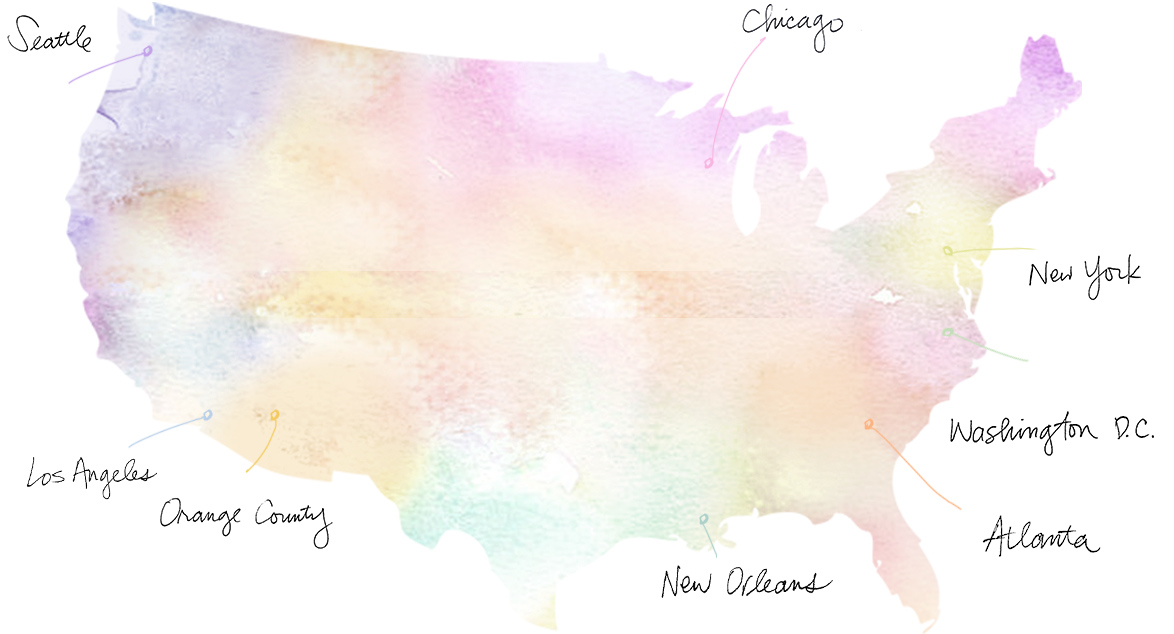 Chicago
Seattle
New York
Washington D.C.
Los Angeles
Orange County
Atlanta
New Orleans